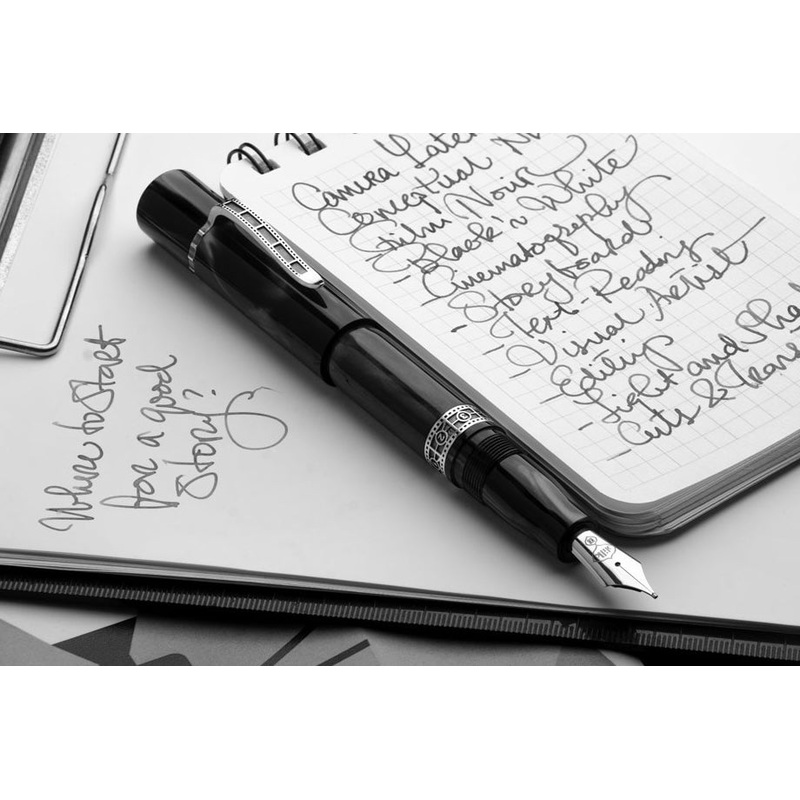 Camera
Conceptual
- Film Noir
- Black 'n White
- Cinematography
- Storyboard
- Text-Reading
- Visual Artist
- Editing
- Light and
- Cuts & Trans
Where to Start
for a good
Story?